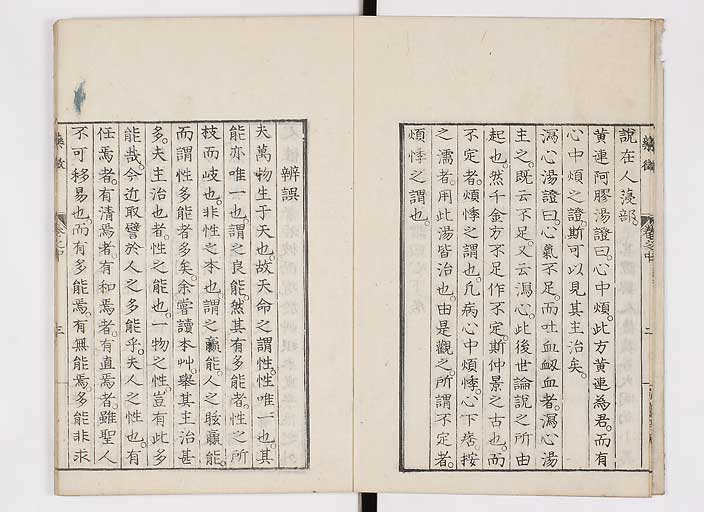 說在人薓部。
黃連阿膠湯證曰。心中煩。此方黃連為君。而有
心中煩之證。斯可以見其主治矣。
瀉心湯證曰。心氣不足。而吐血衂血者。瀉心湯
主之。既云不足。又云瀉心。此後世論說之所由
起也。然千金方不足作不定。斯仲景之古也。而
不定者。煩悸之謂也。凡病心中煩悸。心下痞按
之濡者。用此湯皆治也。由是觀之。所謂不定者。
煩悸之謂也。
藥徵
卷之中
二
辨誤
夫萬物生于天也。故天命之謂性。性唯一也。其
能亦唯一也。謂之良能。然其有多能者。性之所
枝而岐也。非性之本也。謂之贏能。人之眩贏能。
而謂性多能者多矣。余嘗讀本艸。舉其主治甚
多。夫主治也者。性之能也。一物之性豈有此多
能哉。今近取譬於人之多能乎。夫人之性也。有
任焉者。有清焉者。有和焉者。有直焉者。雖聖人
不可移易也。而有多能焉。有無能焉。多能非求
藥徵
卷之中
三